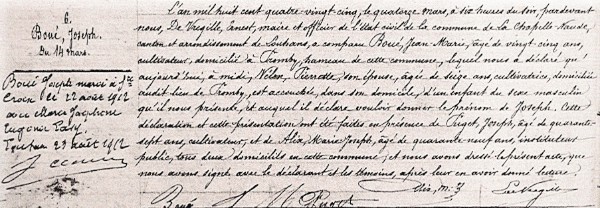 6.
Boué, Joseph.
Du 14 Mars.
Boué Joseph marié à Ste
Croix le 22 août 1912
avec Marie Joséphine
Eugénie
23 août 1912
L'an mil huit cent quatre-vingt-cinq, le quatorze mars, à six heures du soir, pardevant
nous, De Vregille, Ernest, maire et officier de l'état civil de la commune de la Chapelle-Naude,
canton et arrondissement de Louhans, a comparu Boué, Jean-Marie, âgé de vingt cinq ans,
cultivateur, domicilié à Tromby, hameau de cette commune, lequel nous a déclaré qu'
aujourd'hui, à midi, Nolen, Pierrette, son épouse, âgée de seize ans, cultivatrice, domiciliée
audit lieu de Tromby, est accouchée, dans son domicile, d'un enfant du sexe masculin
qu'il nous présente, et auquel il déclare vouloir donner le prénom de Joseph. Cette
déclaration et cette présentation ont été faites en présence de Joseph, âgé de quarante-
sept ans, cultivateur, et de Alix, Marie Joseph, âgé de quarante-neuf ans, instituteur
public, tous deux domiciliés en cette commune; et nous avons dressé le présent acte, que
nous avons signé avec le déclarant et les témoins, après leur en avoir donné lecture.
Boué Alix, m. J. De Vregille